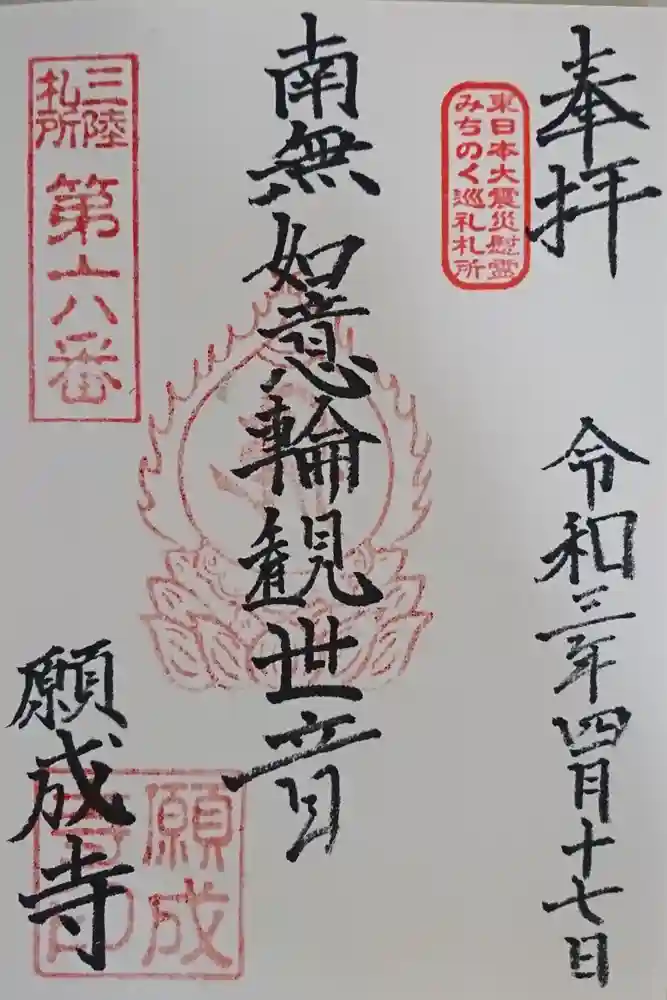 奉拝
令和三年四月十七日
東日本大震災慰霊
みちのく巡礼札所
南無如意輪観世音
三陸
札所
第六番
願成寺
願成
寺印